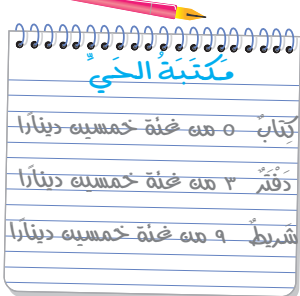 مَكتَبَةُ الحَيِّ
كِتابٌ ٥ من فئة خمسين دينارًا
دَفْتَرٌ ٣ من فئة خمسين دينارًا
شَريطٌ ٩ من فئة خمسين دينارًا